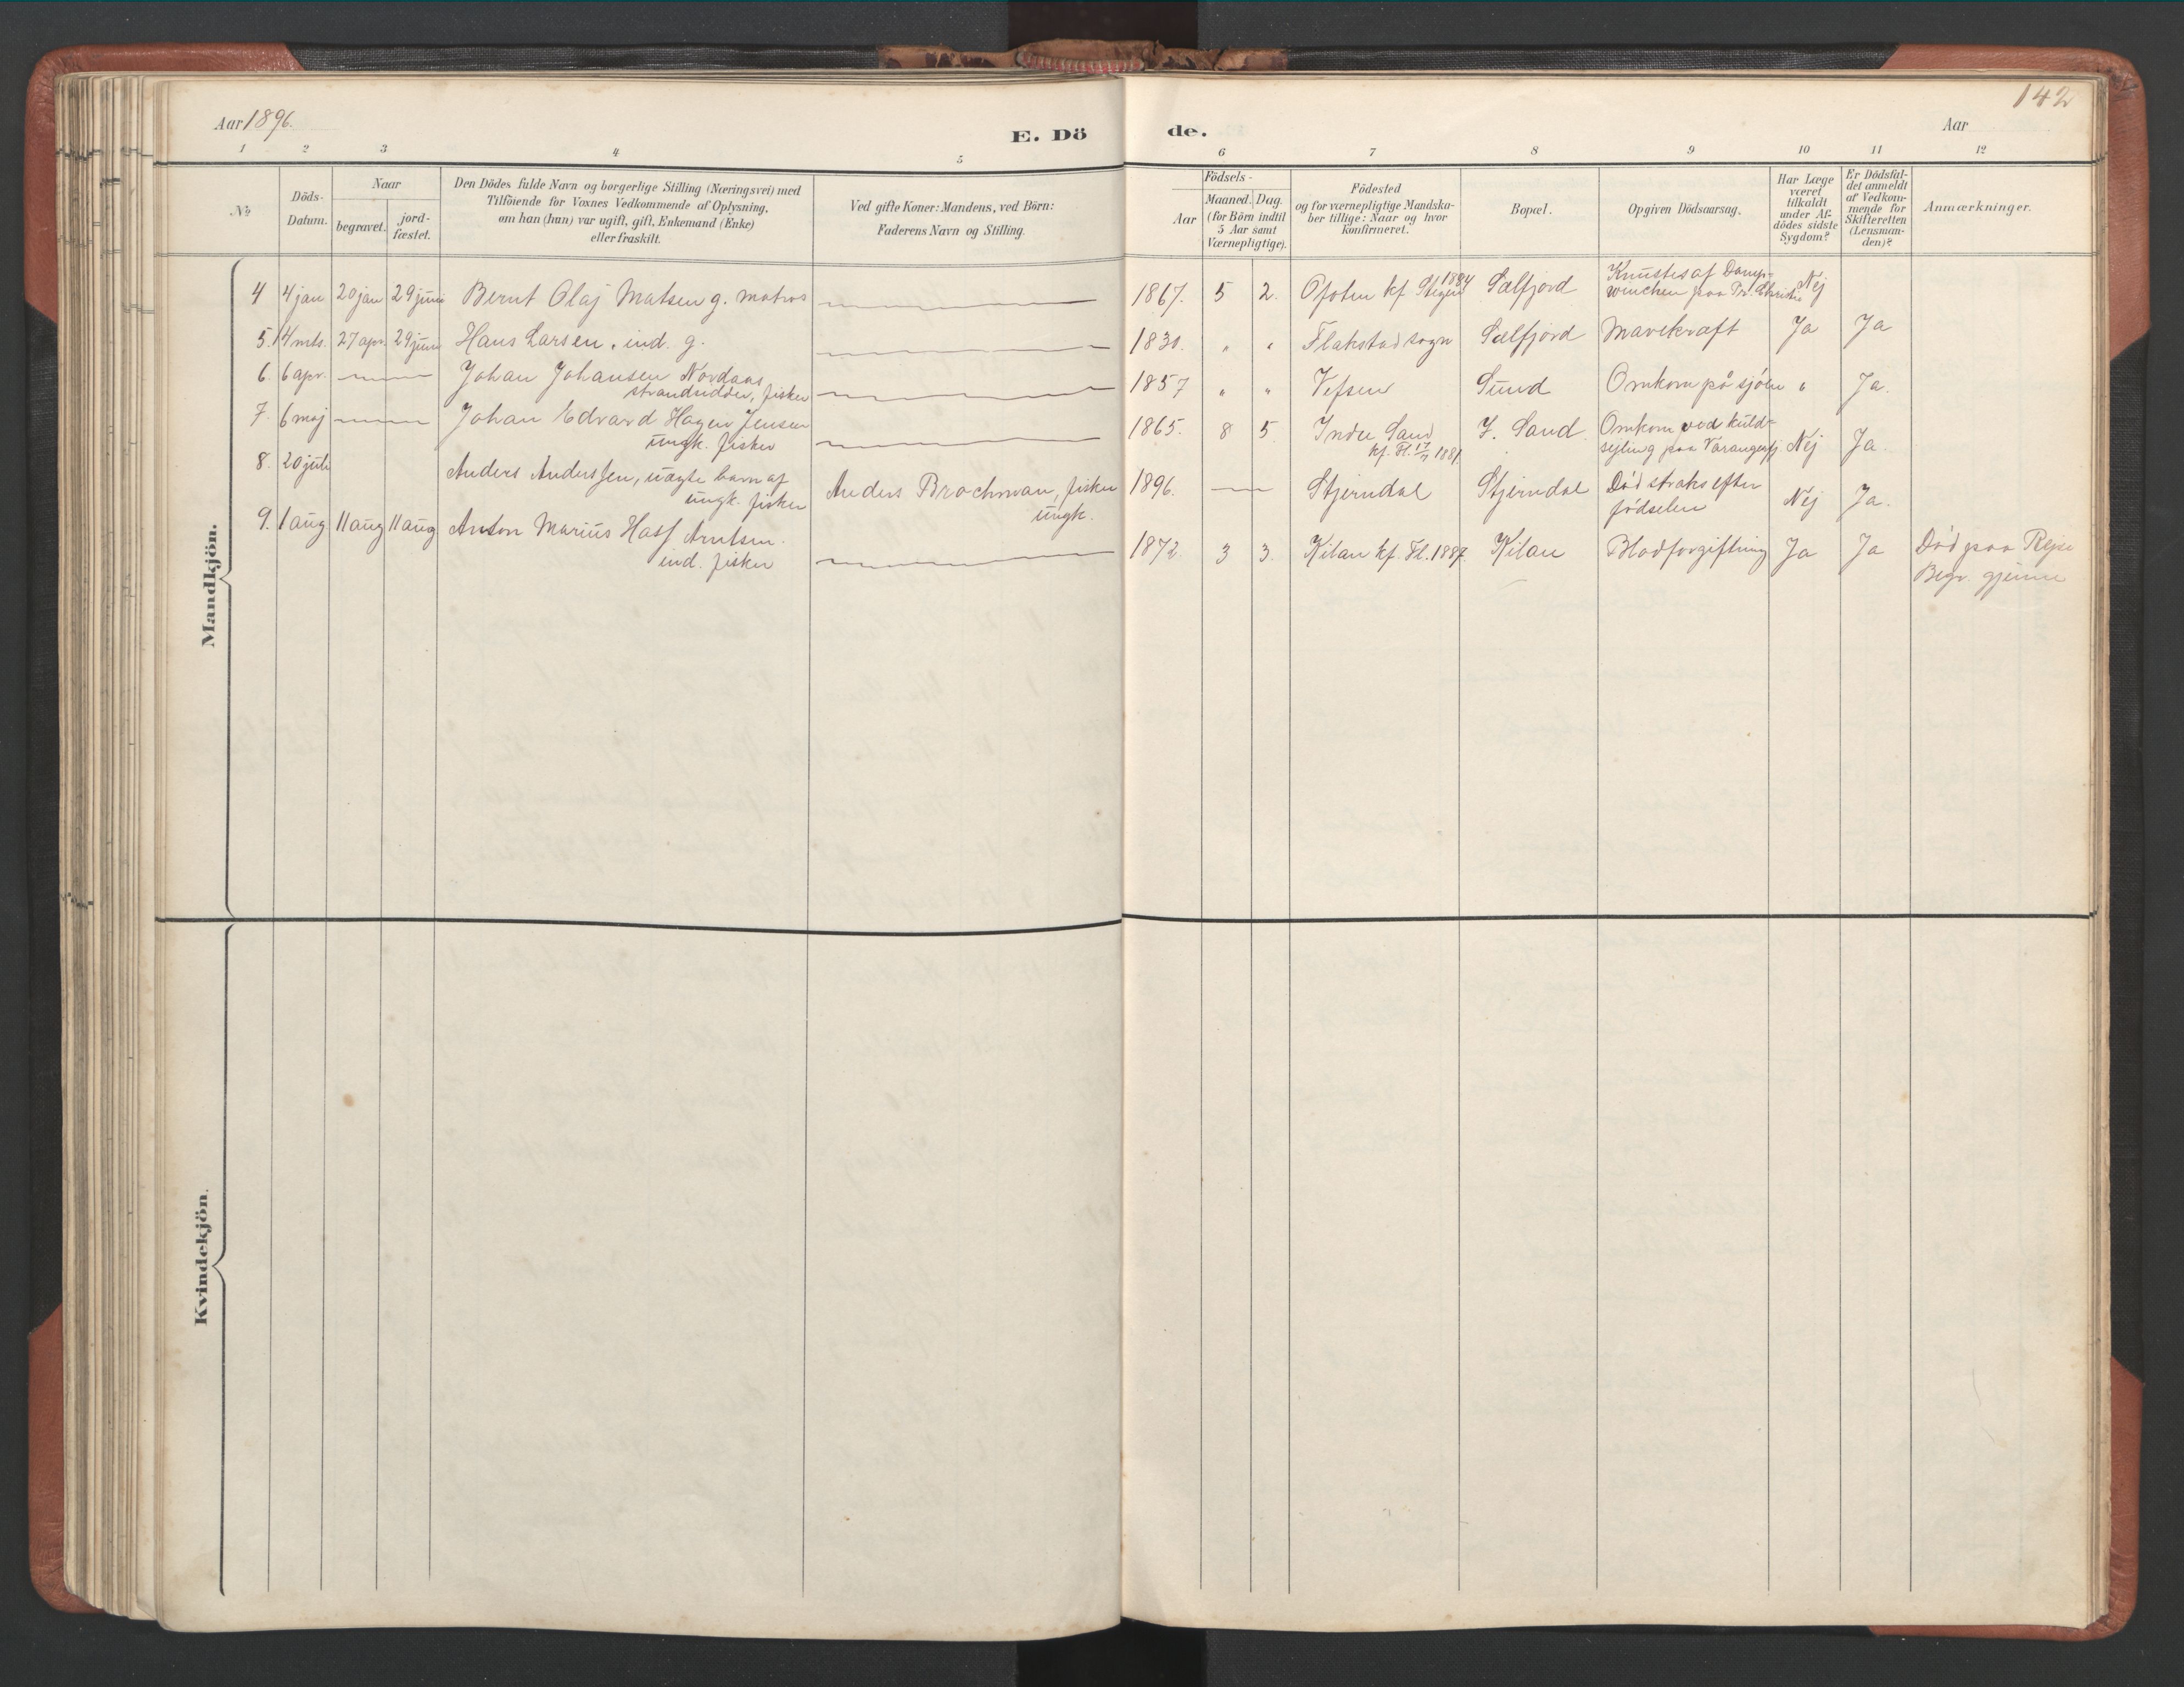 142
Aar 1896.
E. Dö de.
Aar
1 2 3 4 5 6 7 8 9 10 11 12
№
Döds-
Datum.
Naar
begravet.
jord-
fæstet.
Den Dödes fulde Navn og borgerlige Stilling (Næringsvei) med
Tilföiende for Voxnes Vedkommende af Oplysning,
om han (hun) var ugift, gift, Enkemand (Enke)
eller fraskilt.
Ved gifte Koner: Mandens, ved Börn:
Faderens Navn og Stilling.
Födsels-
Aar
Maaned. Dag.
(for Börn indtil
5 Aar samt
Værnepligtige).
Födested
og for værnepligtige Mandska-
ber tillige: Naar og hvor
konfirmeret.
Bopæl.
Opgiven Dödsaarsag.
Har Læge
været
tilkaldt
under Af-
dödes sidste
Sygdom?
Er Dödsfal-
det anmeldt
af Vedkom-
mende for
Skifteretten
(Lensman-
den)?
Anmærkninger.
Mandkjön.
4 4 jan 20 jan 29 juni Bernt Olaj Matsen g. matros 1867. 5 2. Ofoten kf. Stegen 1884 Sælfjord Knustes af Damp-
winchen paa Nej
5. 14 mts. 27 apr. 29 juni Hans Larsen, ind. g. 1830. " " Flakstad sogn Sælfjord Mavekræft Ja Ja
6. 6 apr. Johan Johansen Nordaas
strandsidder, fisker 1857 " " Vefsen Sund Omkom på sjöen " Ja.
7. 6 maj Johan Edvard Hagen Jensen
ungk. fisker 1865. 8 5 Indre Sand
kf. Fl. 17/7 1881. I. Sand Omkom ved kuld-
sejling paa Varangerfj. Nej Ja.
8. 20 juli Anders Anderssen, uægte barn af
ungk. fisker Anders Brochman, fisker
ungk. 1896. Stjerndal Stjerndal Död straks efter
födselen Nej Ja.
9. 1 aug 11 aug 11 aug. Anton Marius Hass Arntsen.
ind. fisker 1872. 3 3. Kilan kf. Fl. 1887. Kilan Blodforgiftning Ja Ja Död paa Rejse
Begr. gjenne
Kvindekjön.